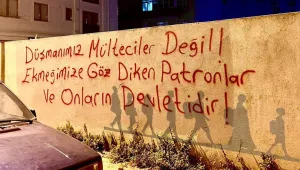 Düşmanımız Mülteciler Değil!
Ekmeğimize Göz Diken Patronlar
Ve Onların Devletidir!